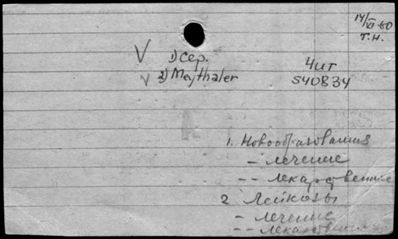 14/XI-60
Т.Н.
V 1) Сер.
V 2) Meythaler
Чит
540834
1. Новообразования
- лечение
-- лекарственное
2. Лейкозы
- лечение
-- лекарственное